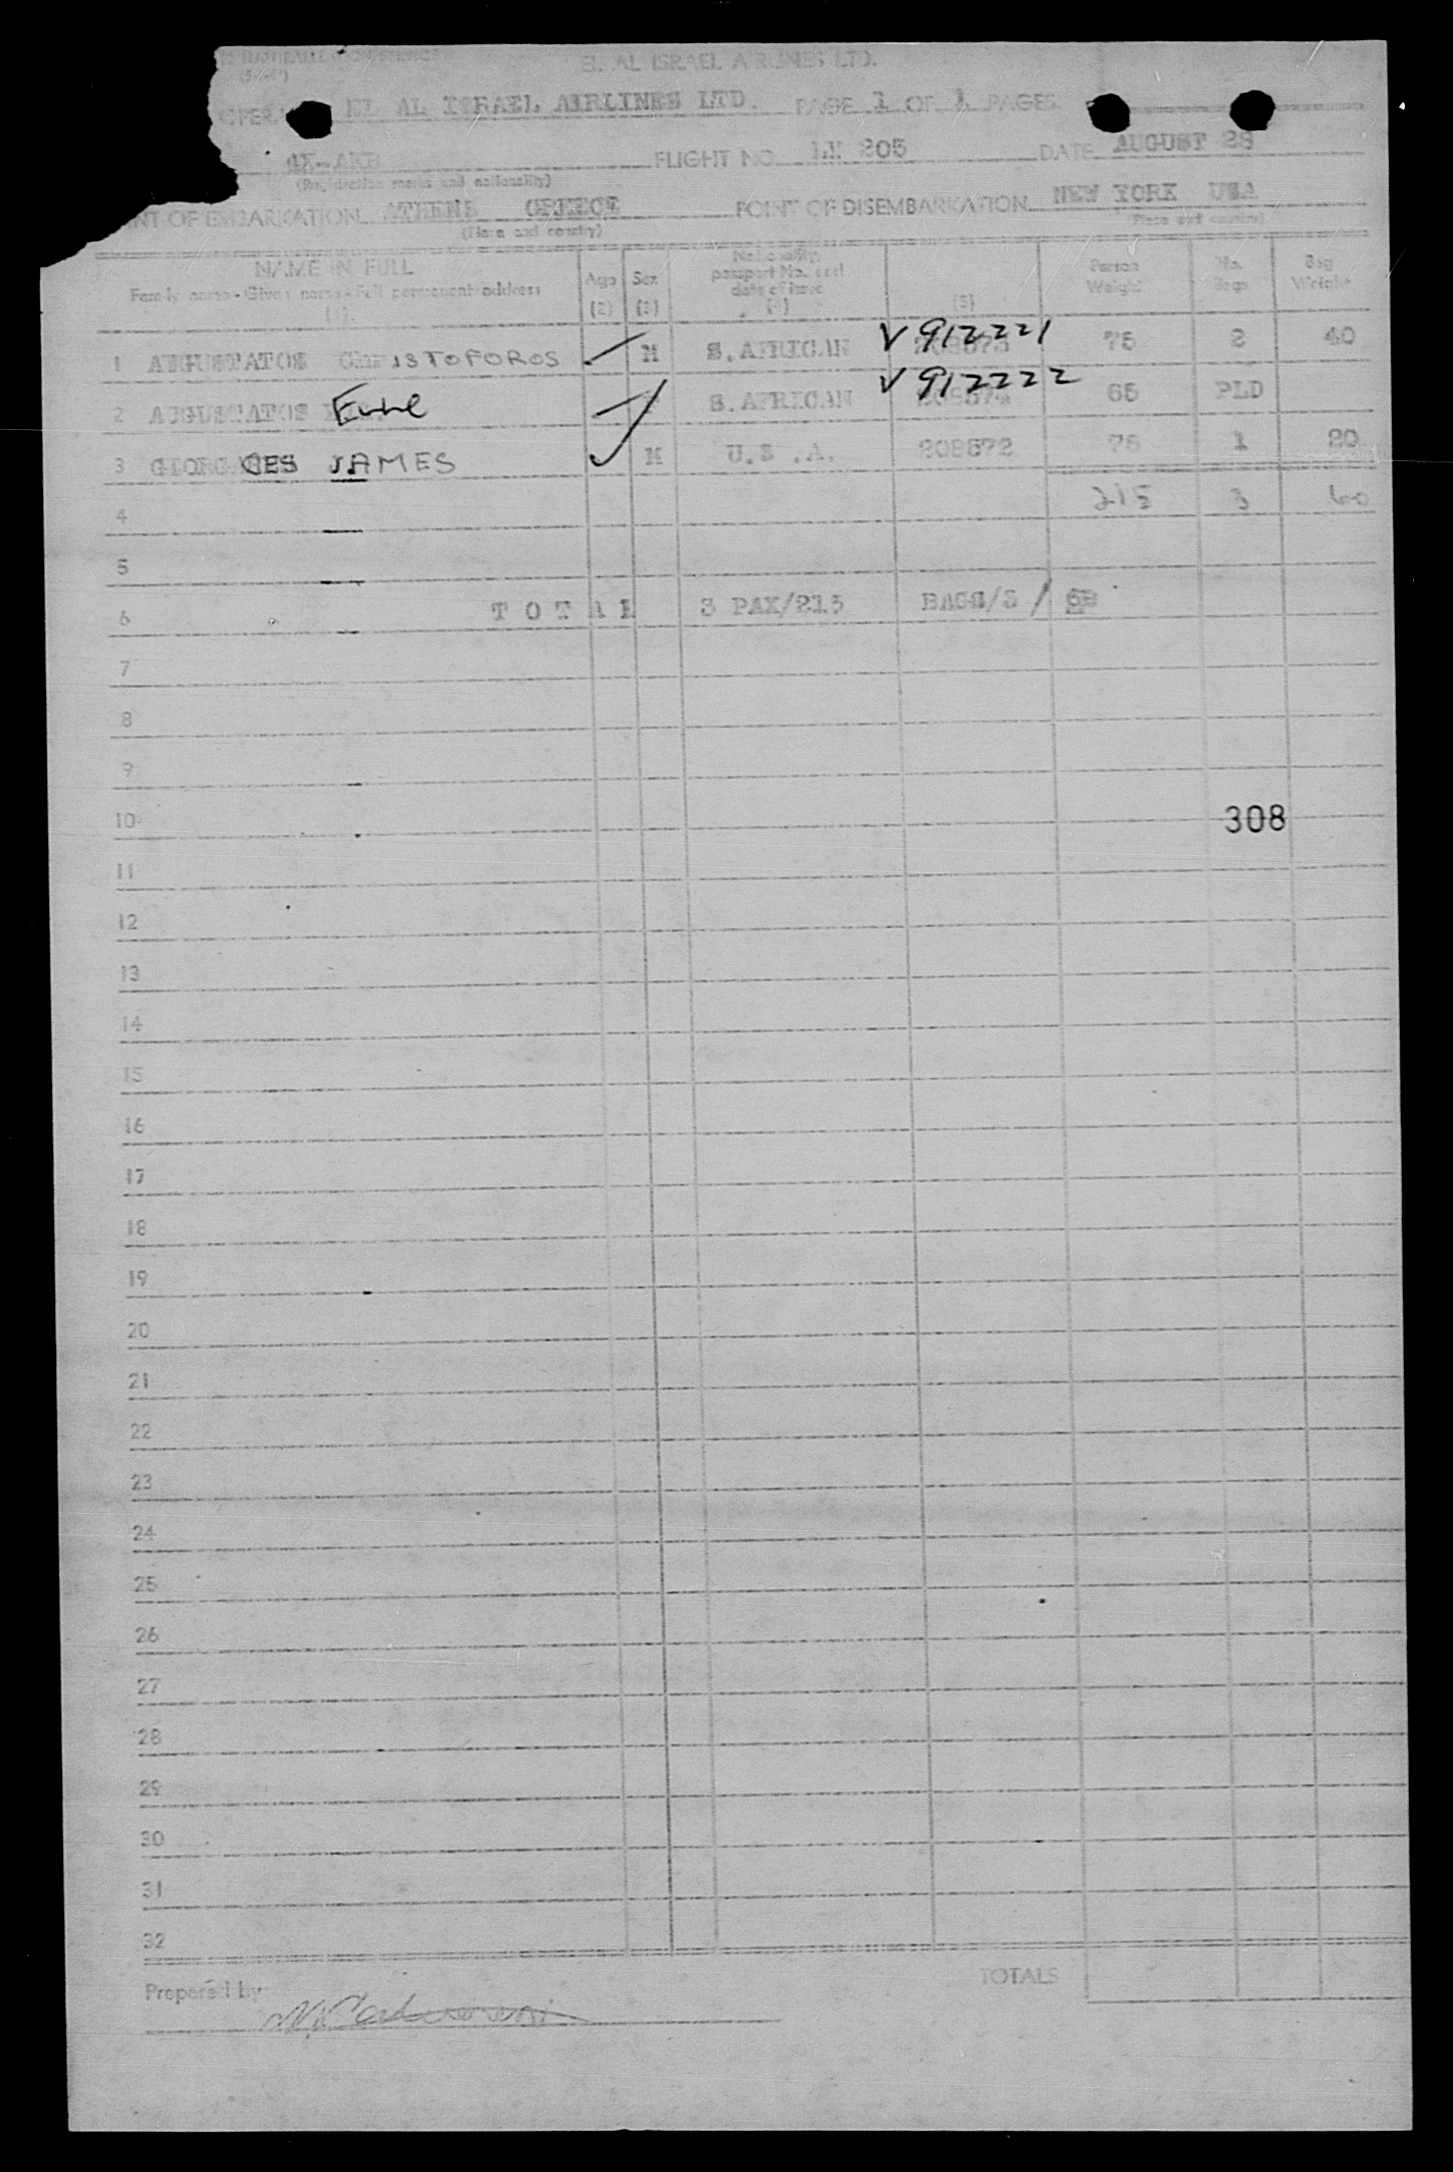 EL AL ISRAEL AIRLINES LTD.
EL AL ISRAEL AIRLINES LTD. PAGE 1 OF 1 PAGES
4X-AKB FLIGHT NO. LY 205 DATE AUGUST 28
(Registration marks and nationality)
INT OF EMBARKATION ATHENS GREECE POINT OF DISEMBARKATION NEW YORK USA
(Place and country) (Place and country)
NAME IN FULL Age Sex Nationality, passport No. and date of issue Person Weight No. Bags Bag Weight
Family name - Given name - Full permanent address
(1) (2) (3) (4) (5)
V 912221
1 AUGUSTATOS CHRISTOFOROS M S. AFRICAN 75 2 40
V 912222
2 AUGUSTATOS S. AFRICAN 65 PLD
3 JAMES M U.S.A. 208572 75 1 20
4 215 3 60
5
6 TOTAL 3 PAX/215 BAGS/3 /
7
8
9
10 308
11
12
13
14
15
16
17
18
19
20
21
22
23
24
25
26
27
28
29
30
31
32
Prepared by TOTALS